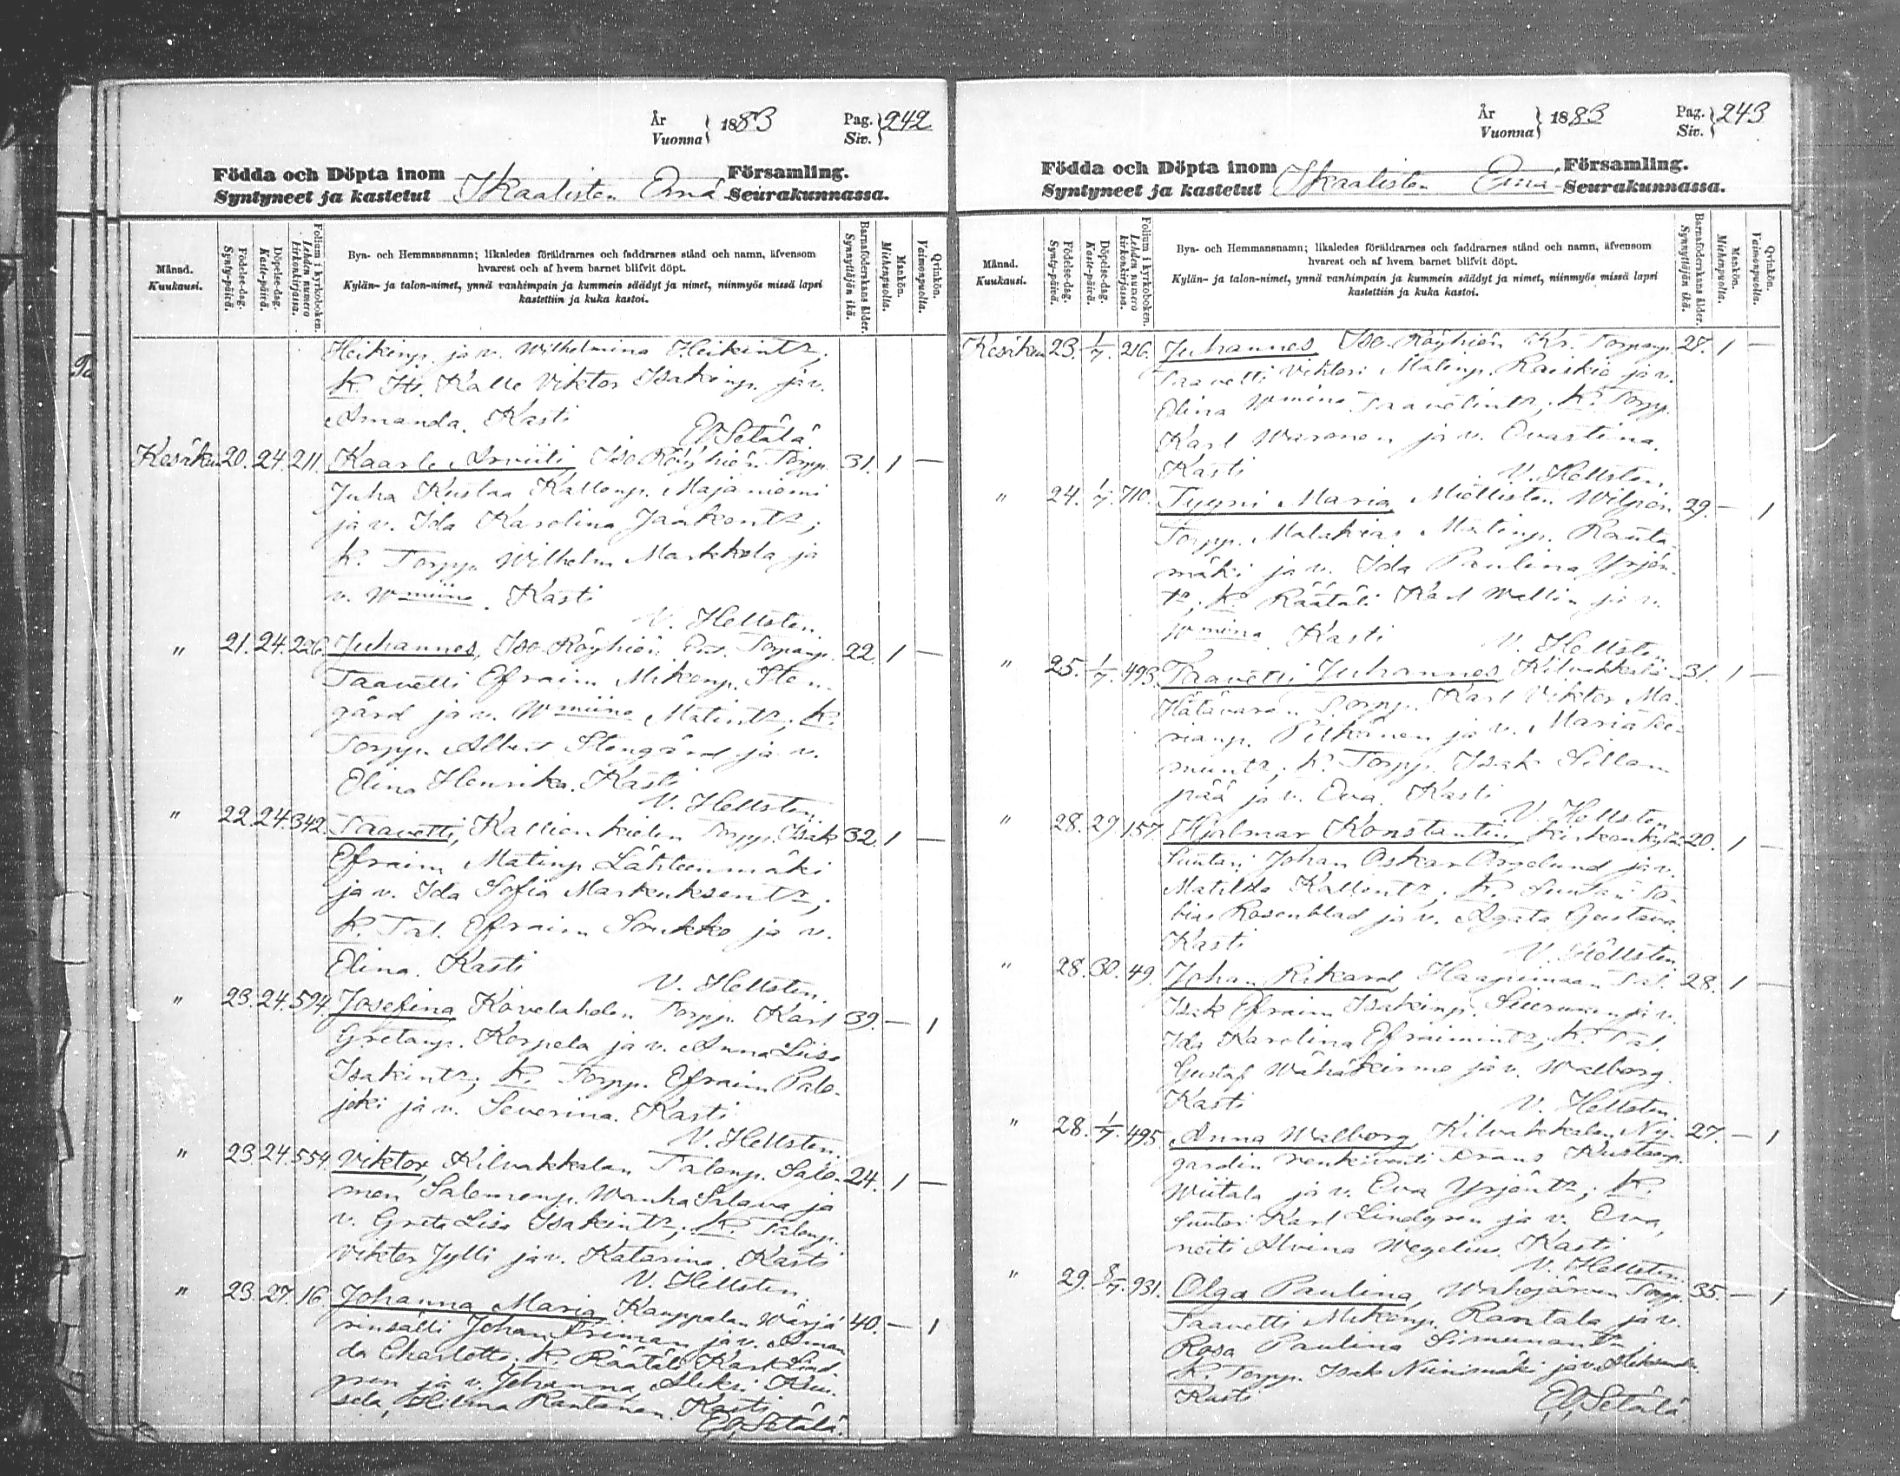 År
Vuonna } 1883
Pag.
Siv. } 242
Födda och Döpta inom
Syntyneet ja kastetut
Ikaalisten Emä
Församling.
Seurakunnassa.
Månad.
Kuukausi.
Födelse-dag.
Synty-päivä.
Döpelse-dag.
Kaste-päivä.
Folium i kyrkoboken.
Lehden numero kirkonkirjassa.
Bya- och Hemmansnamn; likaledes föräldrarnes och faddrarnes stånd och namn, äfvensom
hvarest och af hvem barnet blifvit döpt.
Kylän- ja talon-nimet, ynnä vanhimpain ja kummein säädyt ja nimet, niinmyös missä lapsi
kastettiin ja kuka kastoi.
Barnaföderskans ålder.
Synnyttäjän ikä.
Mankön.
Miehenpuolta.
Qvinkön.
Vaimonpuolta.
Heikinp. ja v. Wilhelmina Heikintr;
K. Kalle Viktor Isakinp. ja v.
Amanda. Kasti
E. Setälä.
Kesäkuu 20. 24. 211. Kaarle Arviiti, Iso Röyhiön Torpp. 31. 1 —
Juha Kustaa Kallenp. Majaniemi
ja v. Ida Karolina Jaakontr;
K. Torpp. Wilhelm Markkola ja
v. Wmiina. Kasti
V. Hellsten.
" 21. 24. 226. Juhannes, Iso Röyhiön Torpanp. 22. 1 —
Taavetti Efraim Mikonp. Sten-
gård ja v. Wmiina Matintr; K.
Torpp. Albert Stengård ja v.
Elina Henrika. Kasti
V. Hellsten.
" 22. 24. 342. Taavetti, Kallionkielen Torpp. Isak 32. 1 —
Efraim Matinp. Lähteenmäki
ja v. Ida Sofia Markuksentr;
K. Tal. Efraim Soukko ja v.
Elina. Kasti
V. Hellsten.
" 23. 24. 594. Josefina, Kovelahden Torpp. Karl 39. — 1
Gretanp. Korpela ja v. Anna Liisa
Isakintr; K. Torpp. Efraim Palo-
joki ja v. Severina. Kasti
V. Hellsten.
" 23 24. 554. Viktor, Kilvakkalan Talonp. Salo- 24. 1 —
mon Salomonp. Wanha Salava ja
v. Greta Lisa Isakintr; K. Talonp.
Viktor Jylli ja v. Katarina. Kasti
V. Hellsten.
" 23. 27. 16. Johanna Maria, Kauppalan Wärjä- 40. — 1
rinsälli Johan Friman ja v. Aman-
da Charlotta; K. Räätäli Karl Lind-
gren ja v. Johanna, Aleksi
Hilma Rantanen. Kasti
E. Setälä.
År
Vuonna } 1883
Pag.
Siv. } 243
Födda och Döpta inom
Syntyneet ja kastetut
Ikaalisten Emä
Församling.
Seurakunnassa.
Månad.
Kuukausi.
Födelse-dag.
Synty-päivä.
Döpelse-dag.
Kaste-päivä.
Folium i kyrkoboken.
Lehden numero kirkonkirjassa.
Bya- och Hemmansnamn; likaledes föräldrarnes och faddrarnes stånd och namn, äfvensom
hvarest och af hvem barnet blifvit döpt.
Kylän- ja talon-nimet, ynnä vanhimpain ja kummein säädyt ja nimet, niinmyös missä lapsi
kastettiin ja kuka kastoi.
Barnaföderskans ålder.
Synnyttäjän ikä.
Mankön.
Miehenpuolta.
Qvinkön.
Vaimonpuolta.
Kesäkuu 23. 1/7. 216. Juhannes, Iso Röyhiön Kr. Torpanp. 27. 1 —
Taavetti Viktori Matinp. Raiskio ja v.
Elina Wmiina Taavetintr; K. Torpp.
Karl Waronen ja v. Evastina.
Kasti
V. Hellsten.
" 24. 1/7. 710. Tyyni Maria, Miettisten Wilpon 29. — 1
Torpp. Malakias Matinp. Rauta-
mäki ja v. Ida Paulina Yrjön-
tr; K. Räätäli Karl Wallin ja v.
Wmiina. Kasti
V. Hellsten.
" 25. 1/7. 493. Taavetti Juhannes, Kilvakkalan 31. 1 —
Torpp. Karl Viktor Ma-
rianp. Pitkänen ja v. Maria Si-
muntr; K. Torpp. Isak Sillan-
pää ja v. Eva. Kasti
V. Hellsten.
" 28. 29 157. Hjalmar Konstantin, Kirkonkylän 20. 1 —
Suutari Johan Oskar Engelund ja v.
Matilda Kallentr; K. Suutari To-
bias Rosenblad ja v. Agata Gustava.
Kasti
V. Hellsten
" 28. 30. 49. Johan Rikard, Haapimaan Tal. 28. 1 —
Isak Efraim Isakinp. Suoranen ja v.
Ida Karolina Efraimintr; K. Tal.
Gustaf Wähäkirmo ja v. Walborg.
Kasti
V. Hellsten.
" 28. 1/7. 495. Anna Walborg, Kilvakkalan Ny- 27. — 1
gardin renkivouti Frans Kustaanp.
Wiitala ja v. Eva Yrjöntr; K.
Suutari Karl Lindgren ja v. Eva,
neiti Alvina Wegelius. Kasti
V. Hellsten.
" 29. 8/7. 931. Olga Paulina, Wahojärven Torpp. 35. — 1
Taavetti Mikonp. Rantala ja v.
Rosa Paulina Simunantr
K. Torpp. Isak Niinimäki ja v. Aleksandra.
Kasti
E. Setälä.